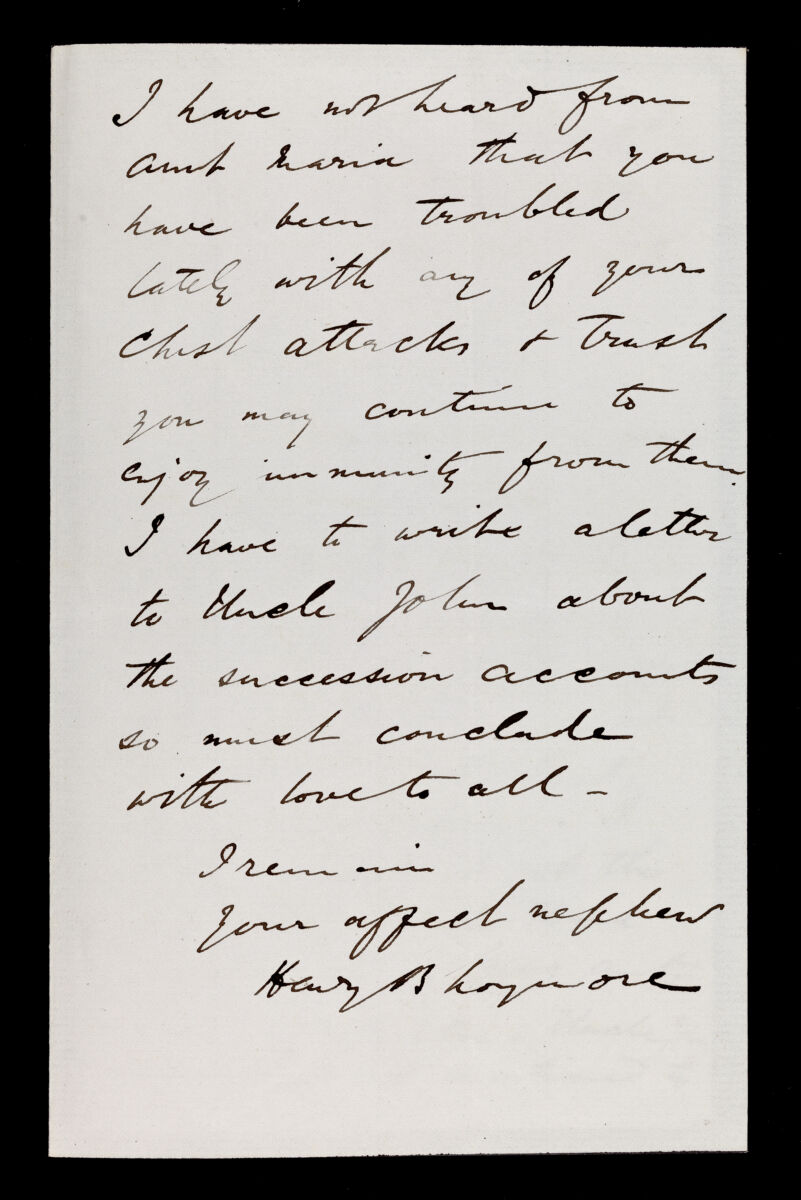 I have not heard from
Aunt Maria that you
have been troubled
lately with any of your
Chest attacks & trust
you may continue to
enjoy immunity from them.
I have to write a letter
to Uncle John about
the succession accounts
so must conclude
with love to all –
I remain
Your affect nephew
Henry B